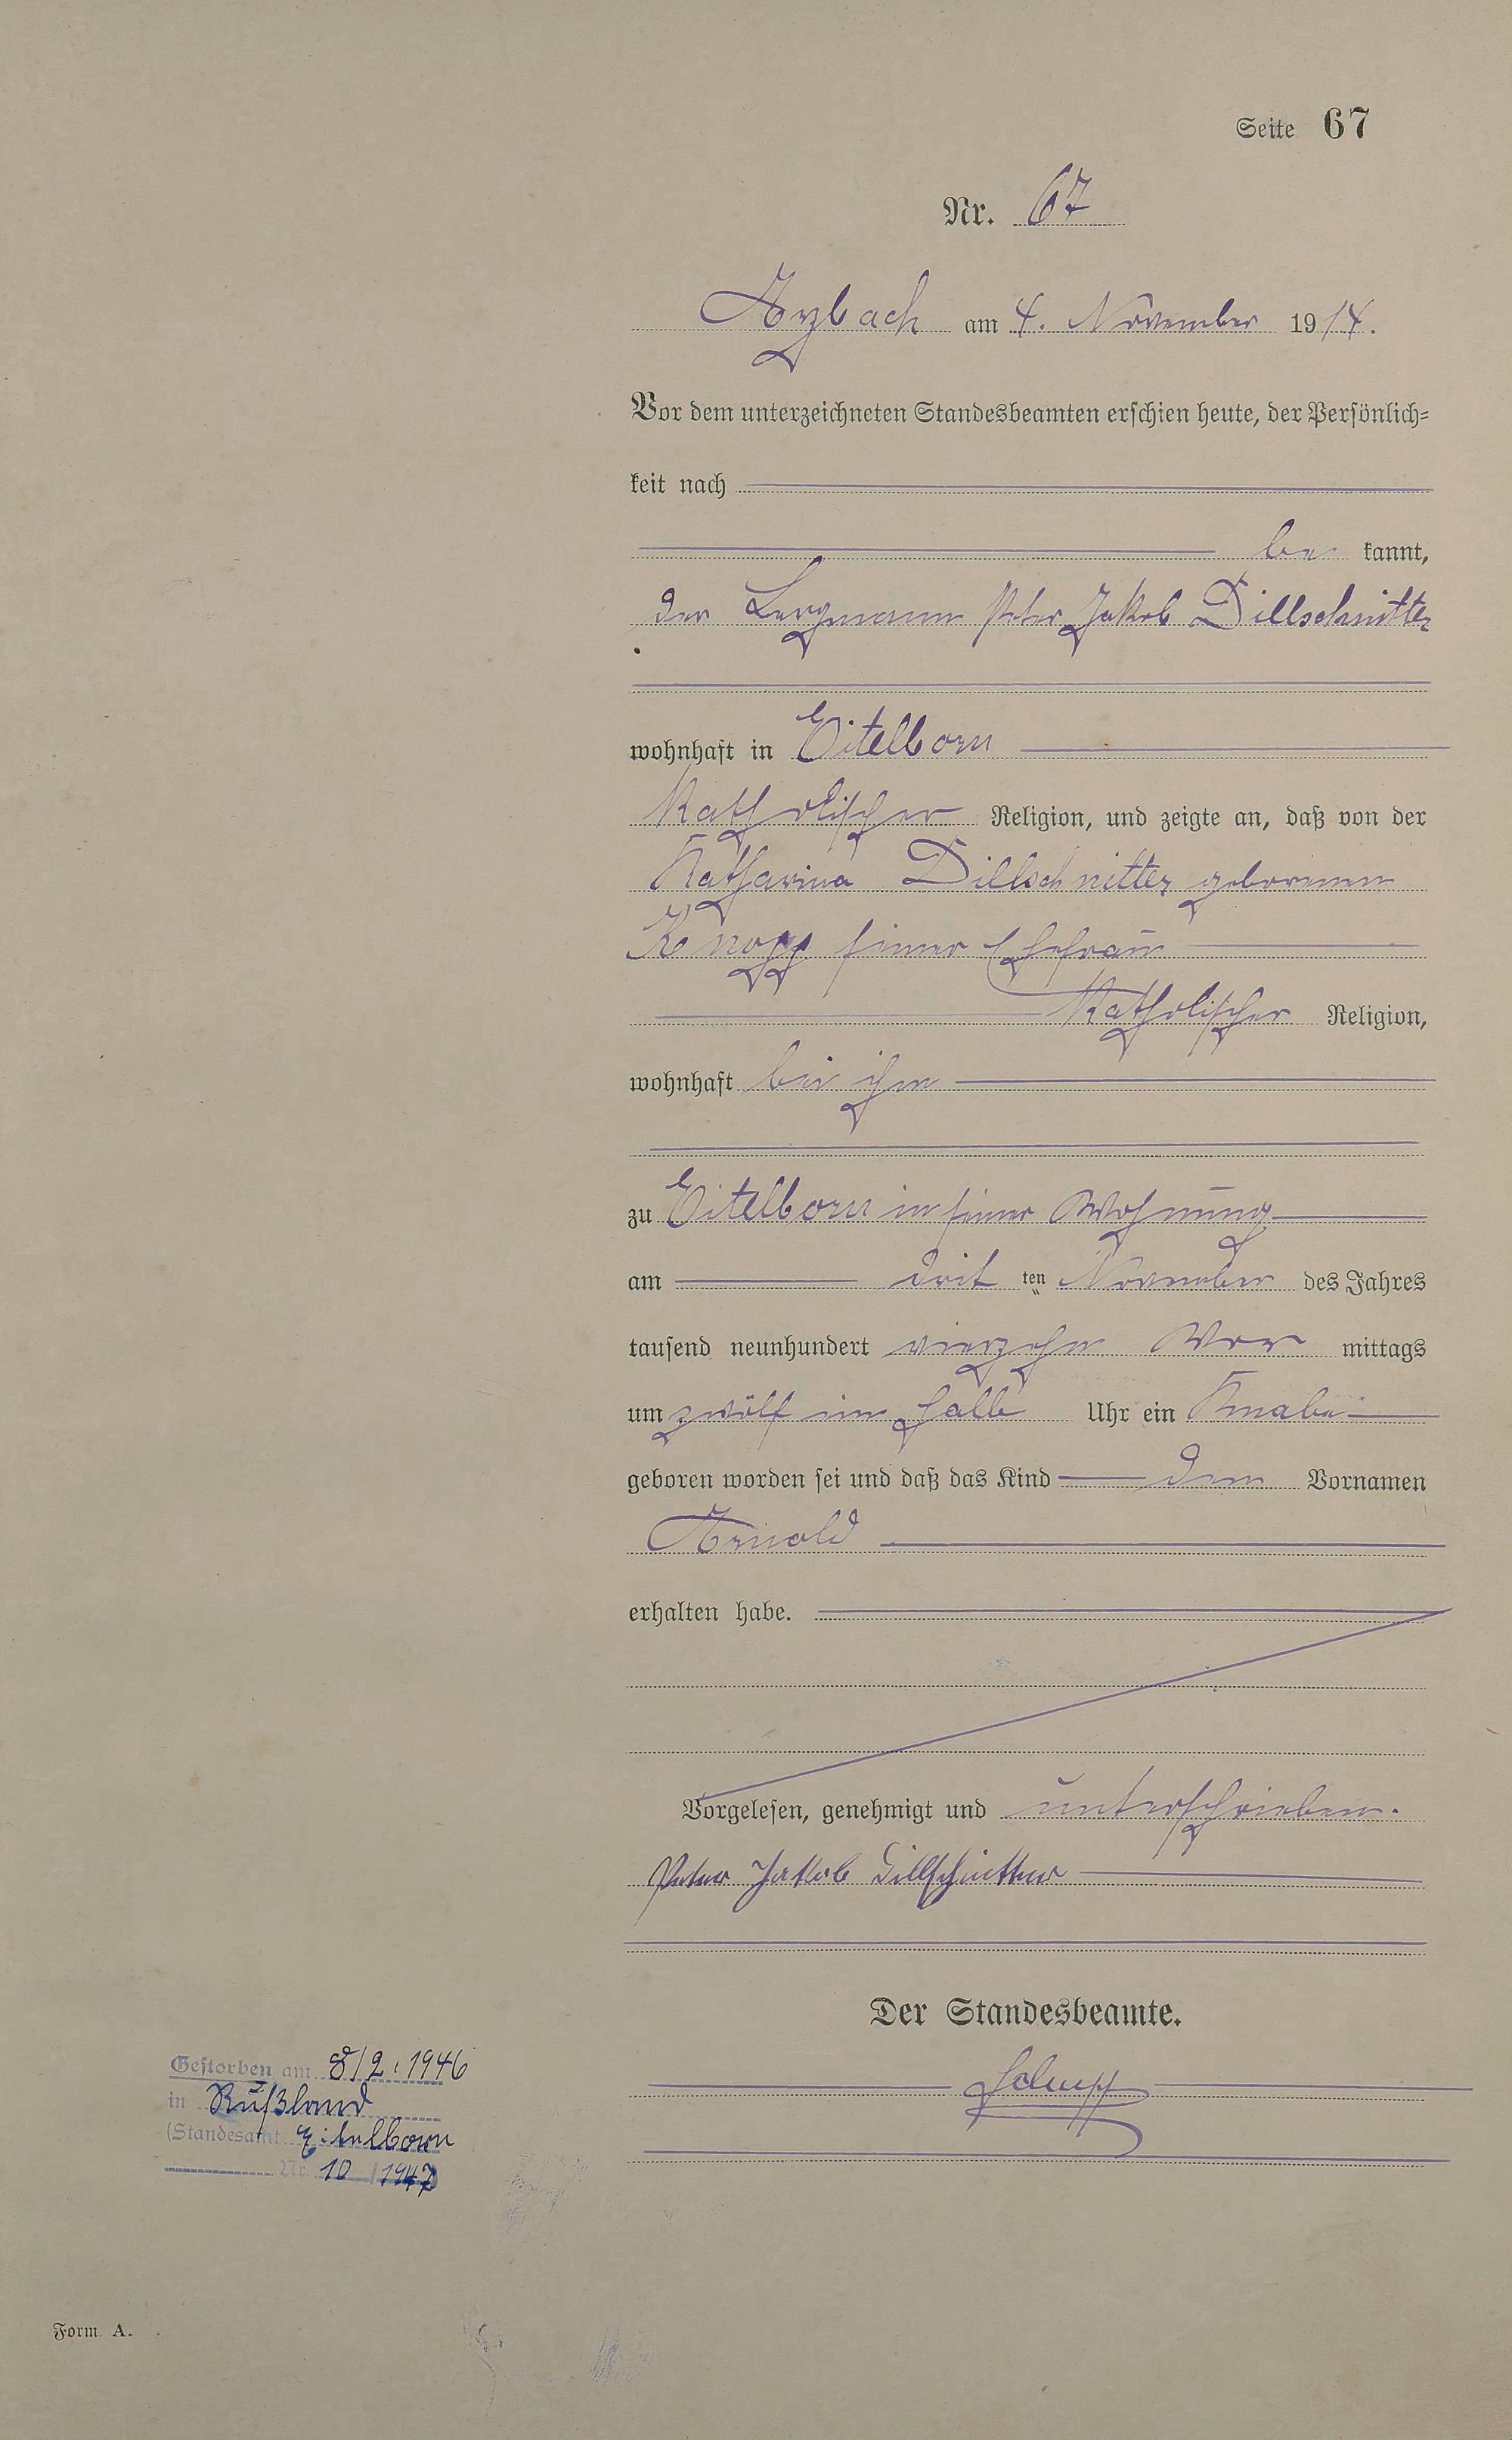 Seite 67
Nr. 67
Arzbach am 4. November 1914.
Vor dem unterzeichneten Standesbeamten erschien heute, der Persönlich=
keit nach
be kannt,
der Bergmann Peter Jakob Dillschnitter
wohnhaft in Eitelborn
katholischer Religion, und zeigte an, daß von der
Katharina Dillschnitter geborenen
Knopp seiner Ehefrau
katholischer Religion,
wohnhaft bei ihm
zu Eitelborn in seiner Wohnung
am drit ten November des Jahres
tausend neunhundert vierzehn Vor mittags
um zwölf ein halb Uhr ein Knabe
geboren worden sei und daß das Kind den Vornamen
Arnold
erhalten habe.
Vorgelesen, genehmigt und unterschrieben.
Peter Jakob Dillschnitter
Der Standesbeamte.
Schupp
Gestorben am 8/2.1946
in Rußland
(Standesamt Eitelborn
Nr. 10/1947)
Form. A.